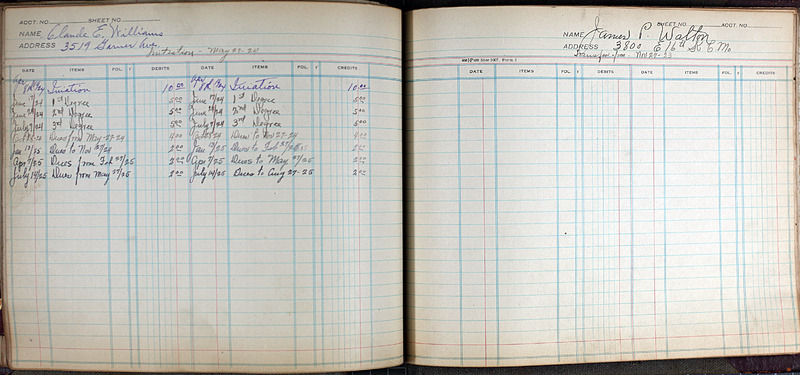 ACCT. NO. SHEET NO.
NAME Claude E. Williams
ADDRESS 3519 Garner Ave.
Initiation - May 27-24
DATE ITEMS FOL. DEBITS DATE ITEMS FOL. CREDITS
Initiation 10.00 Initiation 10.00
June 17/24 1st Degree 5.00 June 17/24 1st Degree 5.00
June 24/24 2nd Degree 5.00 June 24/24 2nd Degree 5.00
July 7/24 3rd Degree 5.00 July 7/24 3rd Degree 5.00
Dues from May-27-24 4.00 Dues to Nov 27-24 4.00
Jan 12/25 Dues to Nov 27/24 2.00 Jan 12/25 Dues to Feb 2.00
Apr 7/25 Dues from Feb 27/25 2.00 Apr 7/25 Dues to May 27/25 2.00
July 14/25 Dues from May 27/25 2.00 July 14/25 Dues to Aug 27-25 2.00
SHEET NO. ACCT. NO.
NAME James P. Walton
ADDRESS 3800 E 16th St. K.C. Mo
Nov 27-23
DATE ITEMS FOL. DEBITS DATE ITEMS FOL. CREDITS